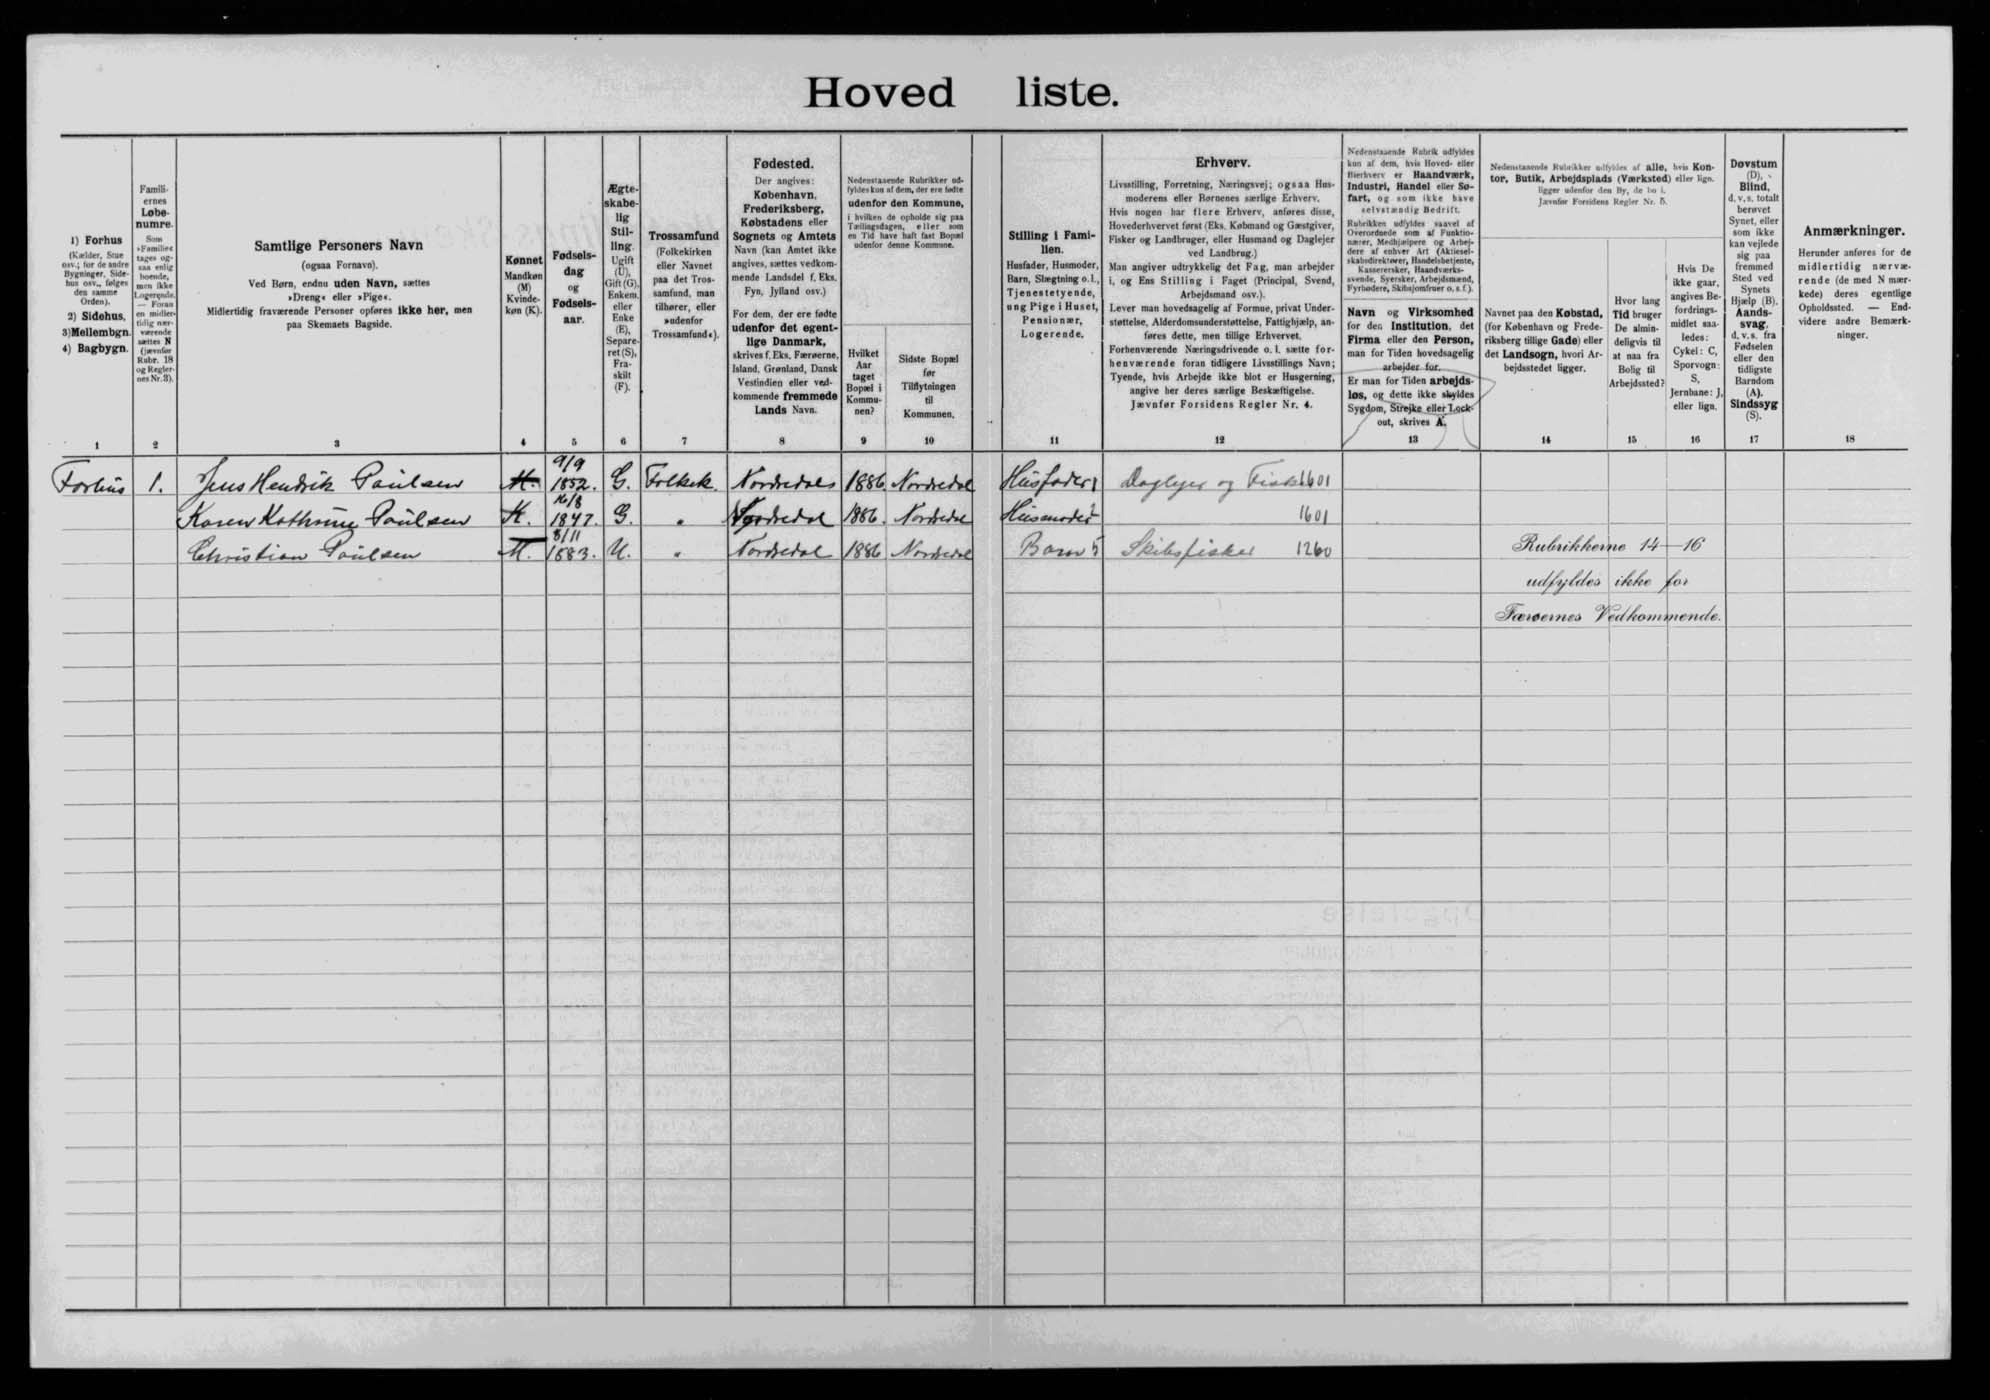 Hoved liste.
1) Forhus
(Kælder, Stue
osv.; for de andre
Bygninger, Side-
hus osv., følges
den samme
Orden).
2) Sidehus,
3) Mellembgn.
4) Bagbygn.
Famili-
ernes
Løbe-
numre.
Som
»Familie«
tages og-
saa enlig
boende,
men ikke
Logerende.
— Foran
en midler-
tidig nær-
værende
sættes N
(jævnfør
Rubr. 18
og Regler-
nes Nr. 3).
Samtlige Personers Navn
(ogsaa Fornavn).
Ved Børn, endnu uden Navn, sættes
»Dreng« eller »Pige«.
Midlertidig fraværende Personer opføres ikke her, men
paa Skemaets Bagside.
Kønnet
Mandkøn
(M)
Kvinde-
køn (K).
Fødsels-
dag
og
Fødsels-
aar.
Ægte-
skabe-
lig
Stil-
ling.
Ugift
(U),
Gift (G),
Enkem.
eller
Enke
(E),
Separe-
ret (S),
Fra-
skilt
(F).
Trossamfund
(Folkekirken
eller Navnet
paa det Tros-
samfund, man
tilhører, eller
»udenfor
Trossamfund«).
Fødested.
Der angives:
København,
Frederiksberg,
Købstadens eller
Sognets og Amtets
Navn (kan Amtet ikke
angives, sættes vedkom-
mende Landsdel f. Eks.
Fyn, Jylland osv.)
For dem, der ere fødte
udenfor det egent-
lige Danmark,
skrives f. Eks. Færøerne,
Island, Grønland, Dansk
Vestindien eller ved-
kommende fremmede
Lands Navn.
Nedenstaaende Rubrikker ud-
fyldes kun af dem, der ere fødte
udenfor den Kommune,
i hvilken de opholde sig paa
Tællingsdagen, eller som
en Tid have haft fast Bopæl
udenfor denne Kommune.
Hvilket
Aar
taget
Bopæl i
Kommu-
nen?
Sidste Bopæl
før
Tilflytningen
til
Kommunen.
Stilling i Fami-
lien.
Husfader, Husmoder,
Barn, Slægtning o.l.,
Tjenestetyende,
ung Pige i Huset,
Pensionær,
Logerende.
Erhverv.
Livsstilling, Forretning, Næringsvej; ogsaa Hus-
moderens eller Børnenes særlige Erhverv.
Hvis nogen har flere Erhverv, anføres disse,
Hovederhvervet først (Eks. Købmand og Gæstgiver,
Fisker og Landbruger, eller Husmand og Daglejer
ved Landbrug.)
Man angiver udtrykkelig det Fag, man arbejder
i, og Ens Stilling i Faget (Principal, Svend,
Arbejdsmand osv.).
Lever man hovedsagelig af Formue, privat Under-
støttelse, Alderdomsunderstøttelse, Fattighjælp, an-
føres dette, men tillige Erhvervet.
Forhenværende Næringsdrivende o. l. sætte for-
henværende foran tidligere Livsstillings Navn;
Tyende, hvis Arbejde ikke blot er Husgerning,
angive her deres særlige Beskæftigelse.
Jævnfør Forsidens Regler Nr. 4.
Nedenstaaende Rubrik udfyldes
kun af dem, hvis Hoved- eller
Bierhverv er Haandværk,
Industri, Handel eller Sø-
fart, og som ikke have
selvstændig Bedrift.
Rubrikken udfyldes saavel af
Overordnede som af Funktio-
nærer, Medhjælpere og Arbej-
dere af enhver Art (Aktiesel-
skabsdirektører, Handelsbetjente,
Kasserersker, Haandværks-
svende, Syersker, Arbejdsmænd,
Fyrbødere, Skibsjomfruer o. s. f.).
Navn og Virksomhed
for den Institution, det
Firma eller den Person,
man for Tiden hovedsagelig
arbejder for.
Er man for Tiden arbejds-
løs, og dette ikke skyldes
Sygdom, Strejke eller Lock-
out, skrives A.
Nedenstaaende Rubrikker udfyldes af alle, hvis Kon-
tor, Butik, Arbejdsplads (Værksted) eller lign.
ligger udenfor den By, de bo i.
Jævnfør Forsidens Regler Nr. 5.
Navnet paa den Købstad,
(for København og Frede-
riksberg tillige Gade) eller
det Landsogn, hvori Ar-
bejdsstedet ligger.
Hvor lang
Tid bruger
De almin-
deligvis til
at naa fra
Bolig til
Arbejdssted?
Hvis De
ikke gaar,
angives Be-
fordrings-
midlet saa-
ledes:
Cykel: C,
Sporvogn:
S,
Jernbane: J,
eller lign.
Døvstum
(D),
Blind,
d. v. s. totalt
berøvet
Synet, eller
som ikke
kan vejlede
sig paa
fremmed
Sted ved
Synets
Hjælp (B).
Aands-
svag,
d. v. s. fra
Fødselen
eller den
tidligste
Barndom
(A).
Sindssyg
(S).
Anmærkninger.
Herunder anføres for de
midlertidig nærvæ-
rende (de med N mær-
kede) deres egentlige
Opholdssted. — End-
videre andre Bemærk-
ninger.
1 2 3 4 5 6 7 8 9 10 11 12 13 14 15 16 17 18
Forhus 1. Jens Hendrik Poulsen M. 9/9 1852. G. Folkek. Nordredals 1886. Nordredal Husfader 1 Daglejer og Fisk 1601
Karen Kathrine Poulsen K. 16/8 1847. G. " Nordredal 1886. Nordredal Husmoder 2 1601
Christian Poulsen M. 8/11 1883. U. " Nordredal 1886 Nordredal Barn 5 Skibsfisker 1260
Rubrikkerne 14—16
udfyldes ikke for
Færøernes Vedkommende.